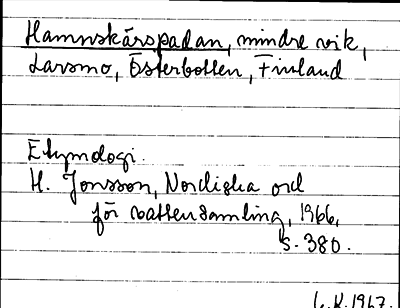 Hamnskärspadan, mindre vik,
Larsmo, Österbotten, Finland
Etymologi.
H. Jonsson, Nordiska ord
för vattensamling, 1966,
s. 380.
L.K. 1967.